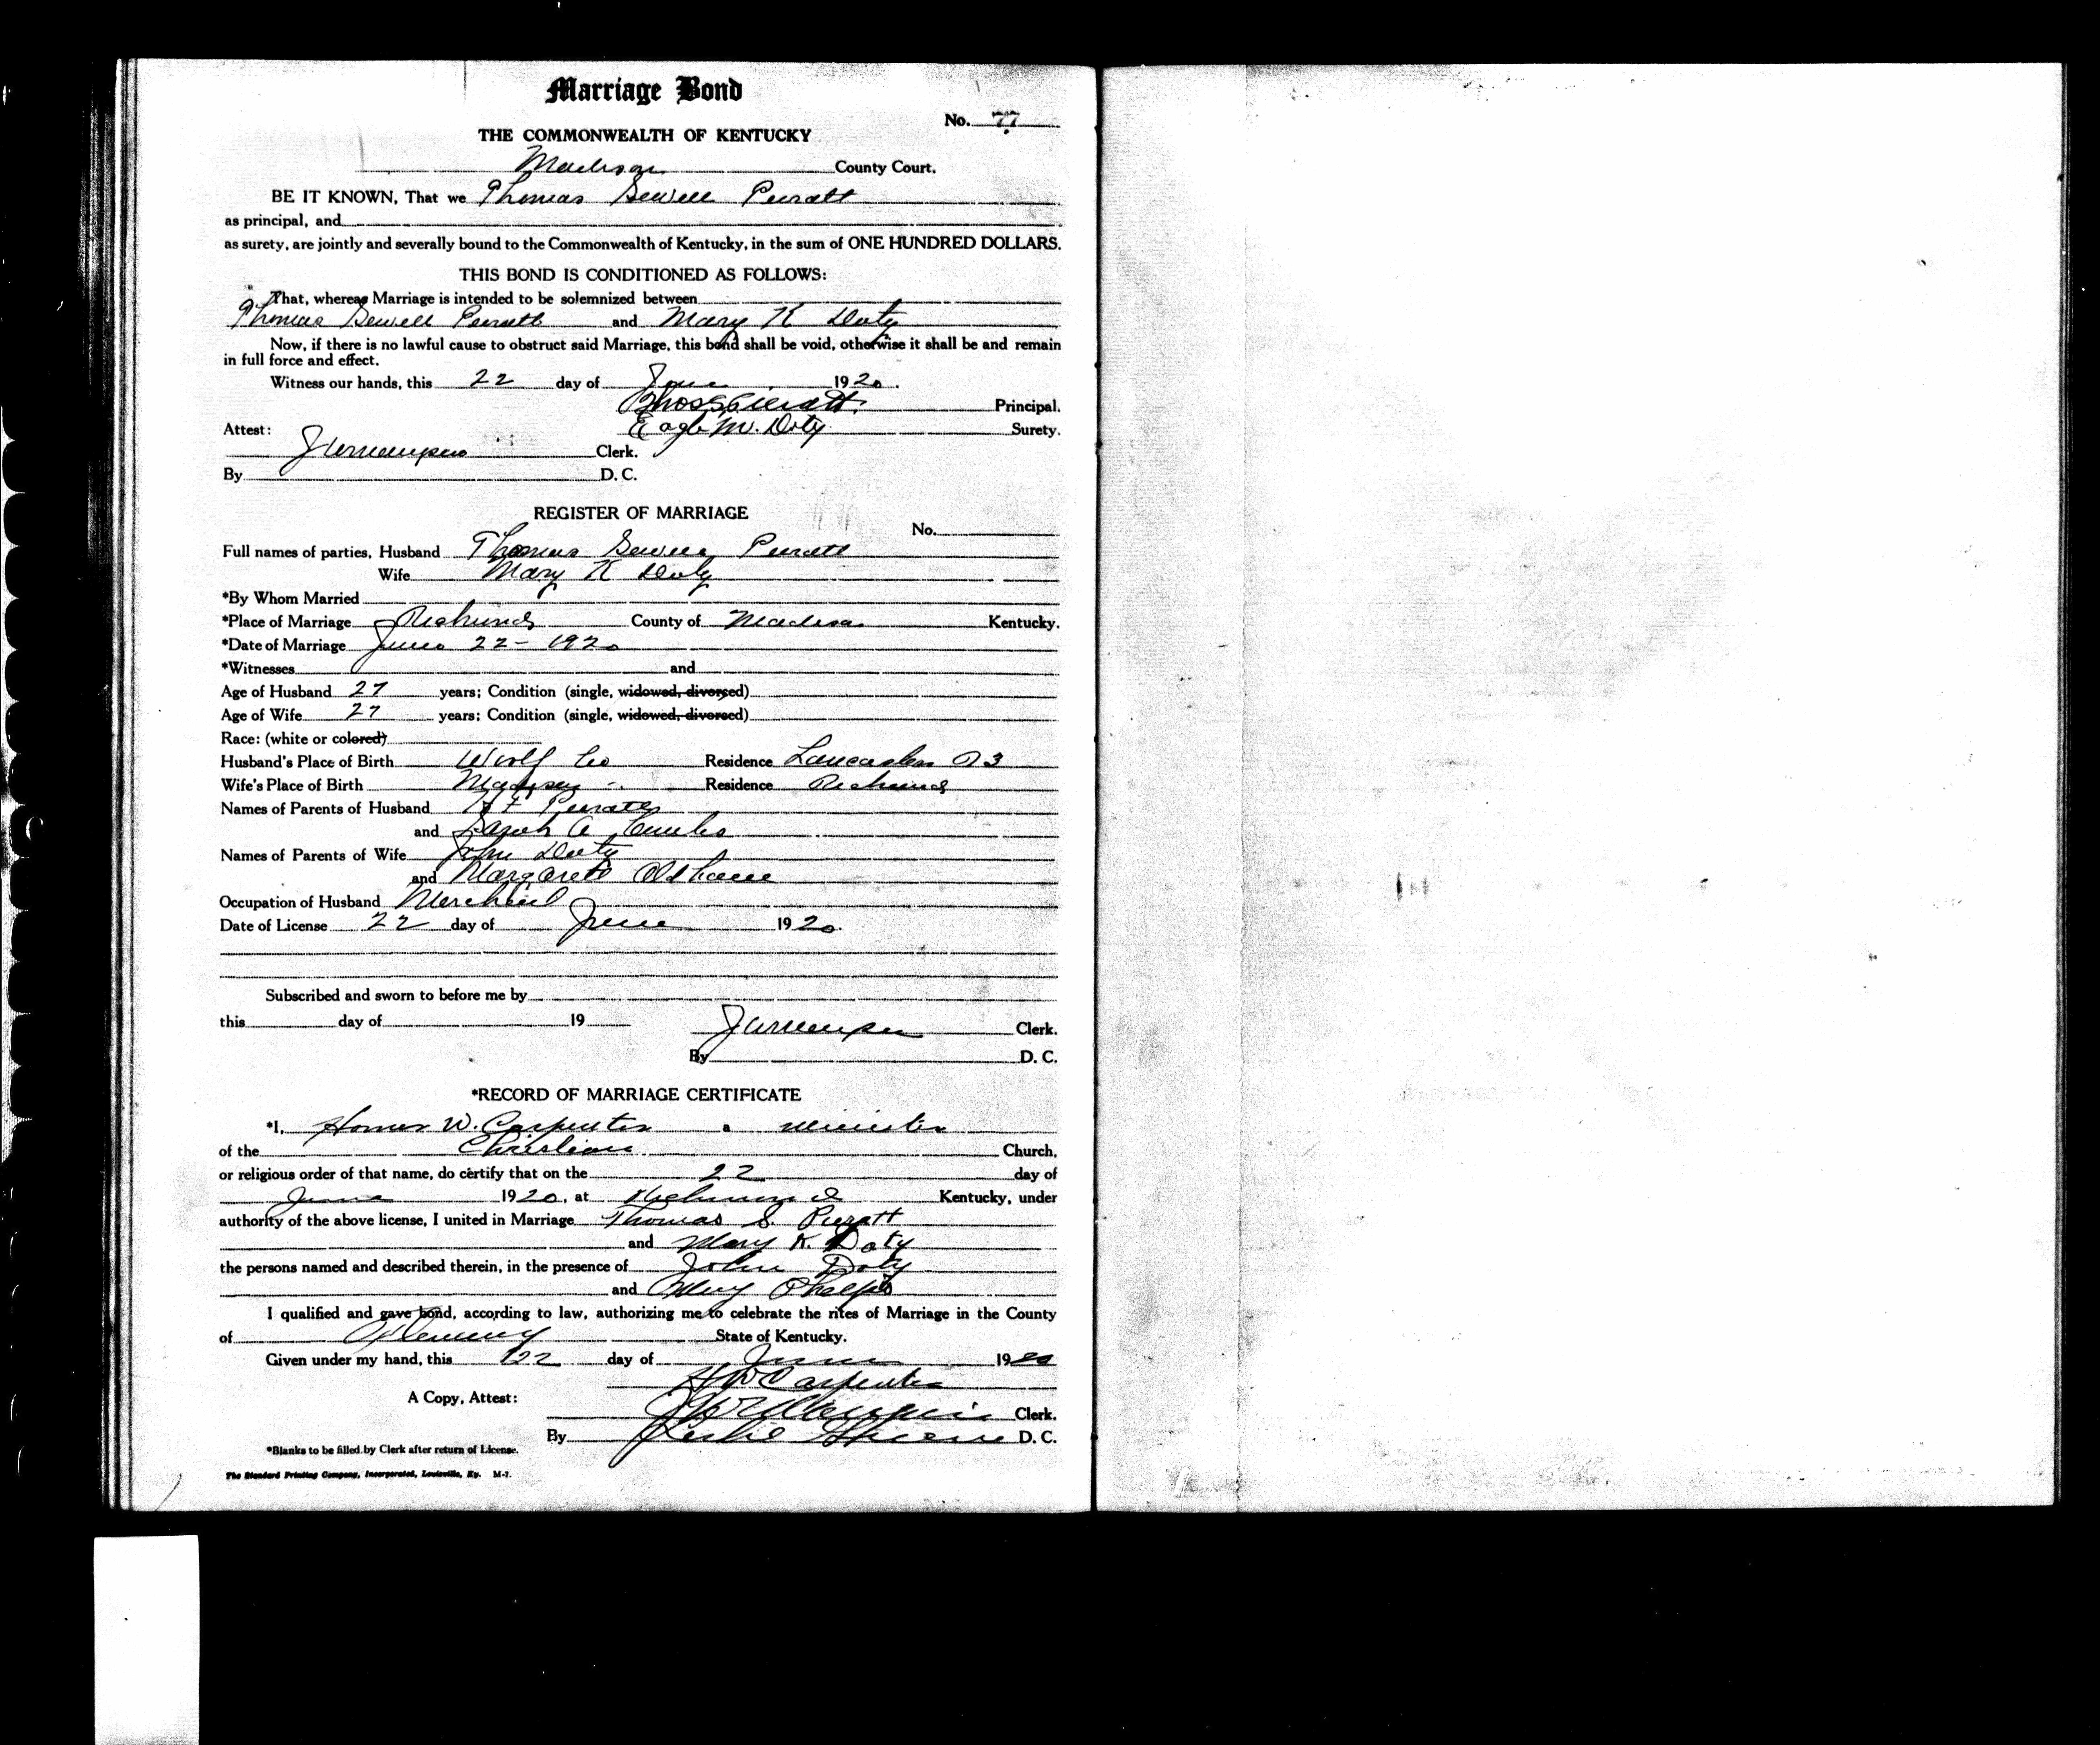 Marriage Bond
No. 77
THE COMMONWEALTH OF KENTUCKY
Madison County Court.
BE IT KNOWN, That we Thomas Sewell Pieratt
as principal, and
as surety, are jointly and severally bound to the Commonwealth of Kentucky, in the sum of ONE HUNDRED DOLLARS.
THIS BOND IS CONDITIONED AS FOLLOWS:
That, whereas Marriage is intended to be solemnized between
Thomas Sewell Pieratt and Mary K Doty
Now, if there is no lawful cause to obstruct said Marriage, this bond shall be void, otherwise it shall be and remain
in full force and effect.
Witness our hands, this 22 day of June 1920.
Thos S Pieratt. Principal.
Attest: Eagle M. Doty Surety.
Clerk.
By D. C.
REGISTER OF MARRIAGE
No.
Full names of parties, Husband Thomas Sewell Pieratt
Wife Mary K Doty
*By Whom Married
*Place of Marriage Richmond County of Madison Kentucky.
*Date of Marriage June 22-1920
*Witnesses and
Age of Husband 27 years; Condition (single, widowed, divorced)
Age of Wife 27 years; Condition (single, widowed, divorced)
Race: (white or colored)
Husband's Place of Birth Wolf Co Residence Lancaster R3
Wife's Place of Birth Madison Residence Richmond
Names of Parents of Husband Pieratt
and Sarah A Combs
Names of Parents of Wife John Doty
and Margarett Oldham
Occupation of Husband Merchant
Date of License 22 day of June 1920.
Subscribed and sworn to before me by
this day of 19
Clerk.
By D. C.
*RECORD OF MARRIAGE CERTIFICATE
*I, Homer W. Carpenter a minister
of the Christian Church,
or religious order of that name, do certify that on the 22 day of
June 1920, at Richmond Kentucky, under
authority of the above license, I united in Marriage Thomas S. Pieratt
and Mary K. Doty
the persons named and described therein, in the presence of John Doty
and Mary Phelps
I qualified and gave bond, according to law, authorizing me to celebrate the rites of Marriage in the County
of State of Kentucky.
Given under my hand, this 22 day of June 1920
H W Carpenter
A Copy, Attest:
Clerk.
By Leslie D. C.
*Blanks to be filled by Clerk after return of License.
The Standard Printing Company, Incorporated, Louisville, Ky. M-7.